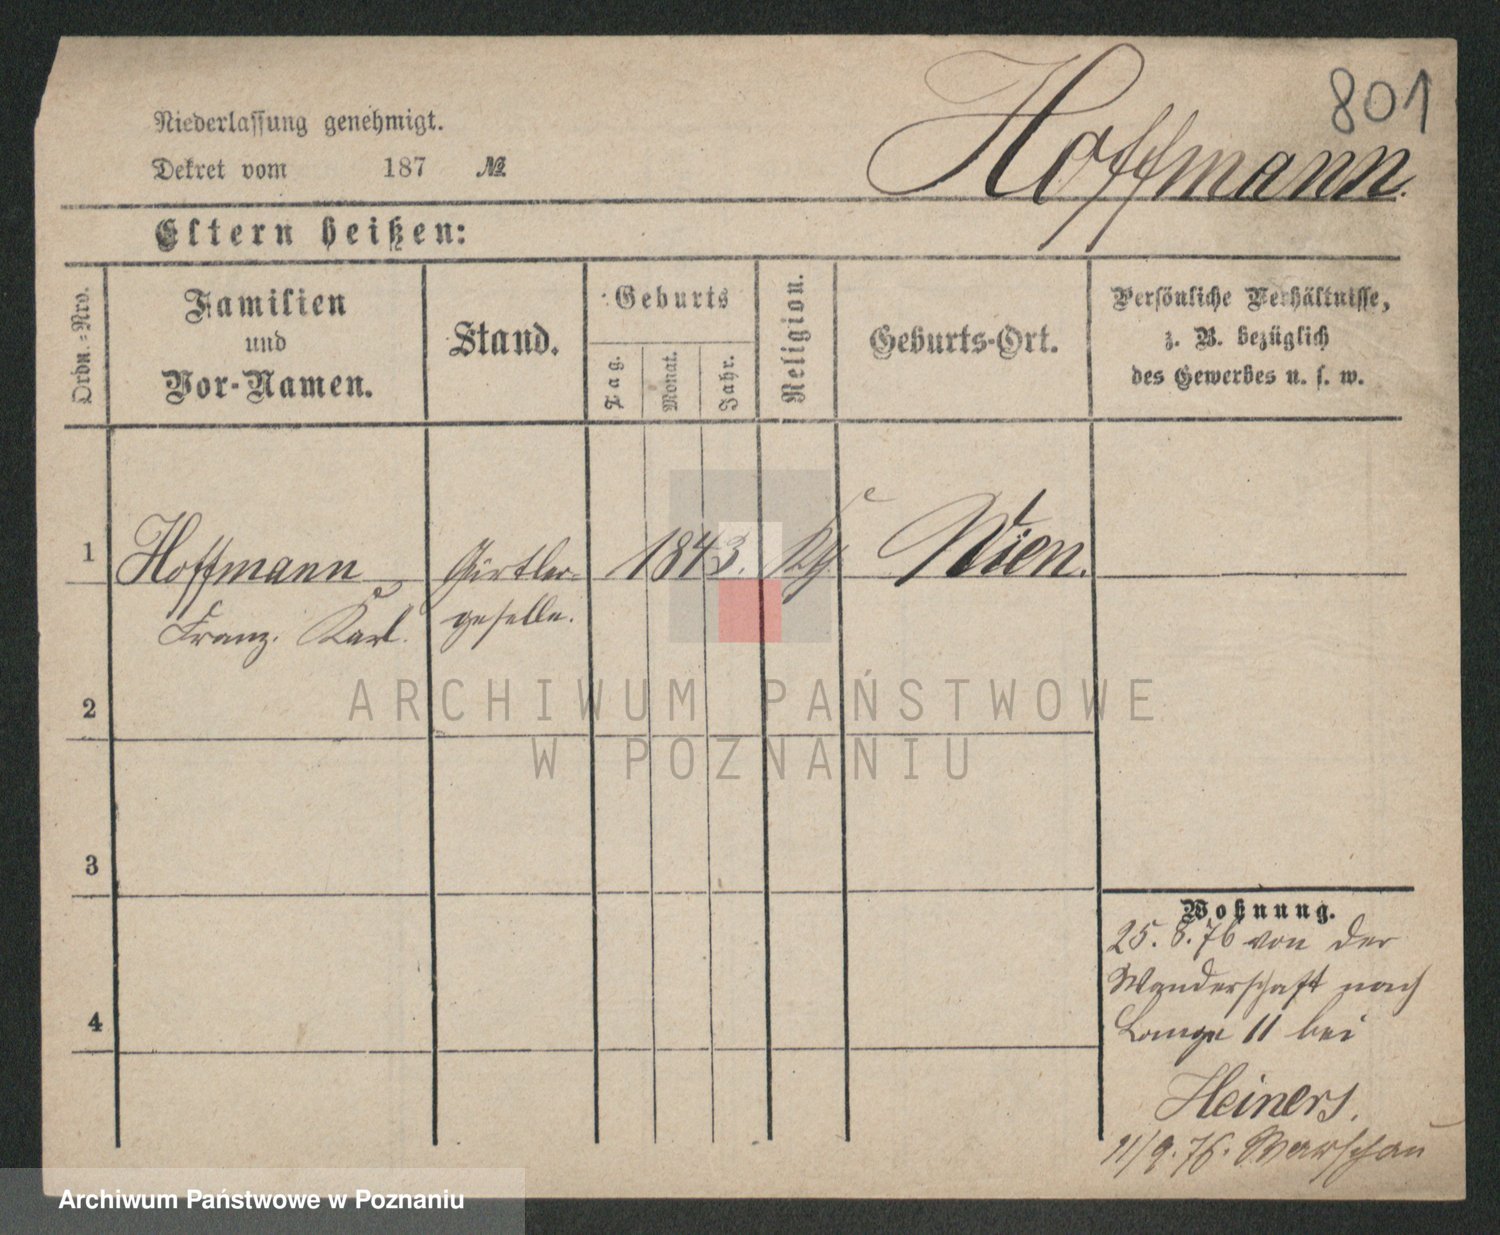 801
Hoffmann.
Niederlassung genehmigt.
Dekret vom 187 №
Eltern heißen:
Ordn.-Nro.
Familien
und
Vor-Namen.
Stand.
Geburts
Tag.
Monat.
Jahr.
Religion.
Geburts-Ort.
Persönliche Verhältnisse,
z. B. bezüglich
des Gewerbes u. s. w.
1
Hoffmann
Franz. Karl.
Gürtler-
geselle.
1843.
Wien.
2
3
4
ARCHIWUM PAŃSTWOWE
W POZNANIU
Wohnung.
25. 8. 76 von der
Wanderschaft nach
Lange 11 bei
Heiners.
11/9. 76. Warschau
Archiwum Państwowe w Poznaniu